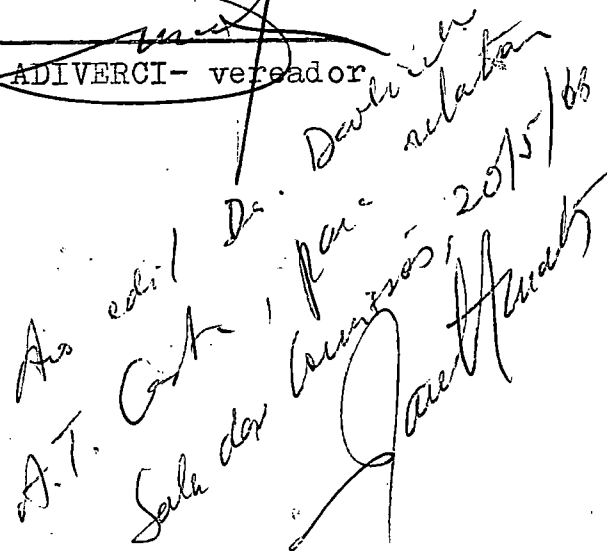 ADIVERCI- vereador
Ao edil Dr.
A.T. Costa, para relatar
Sala das Comissões, 20/5/66